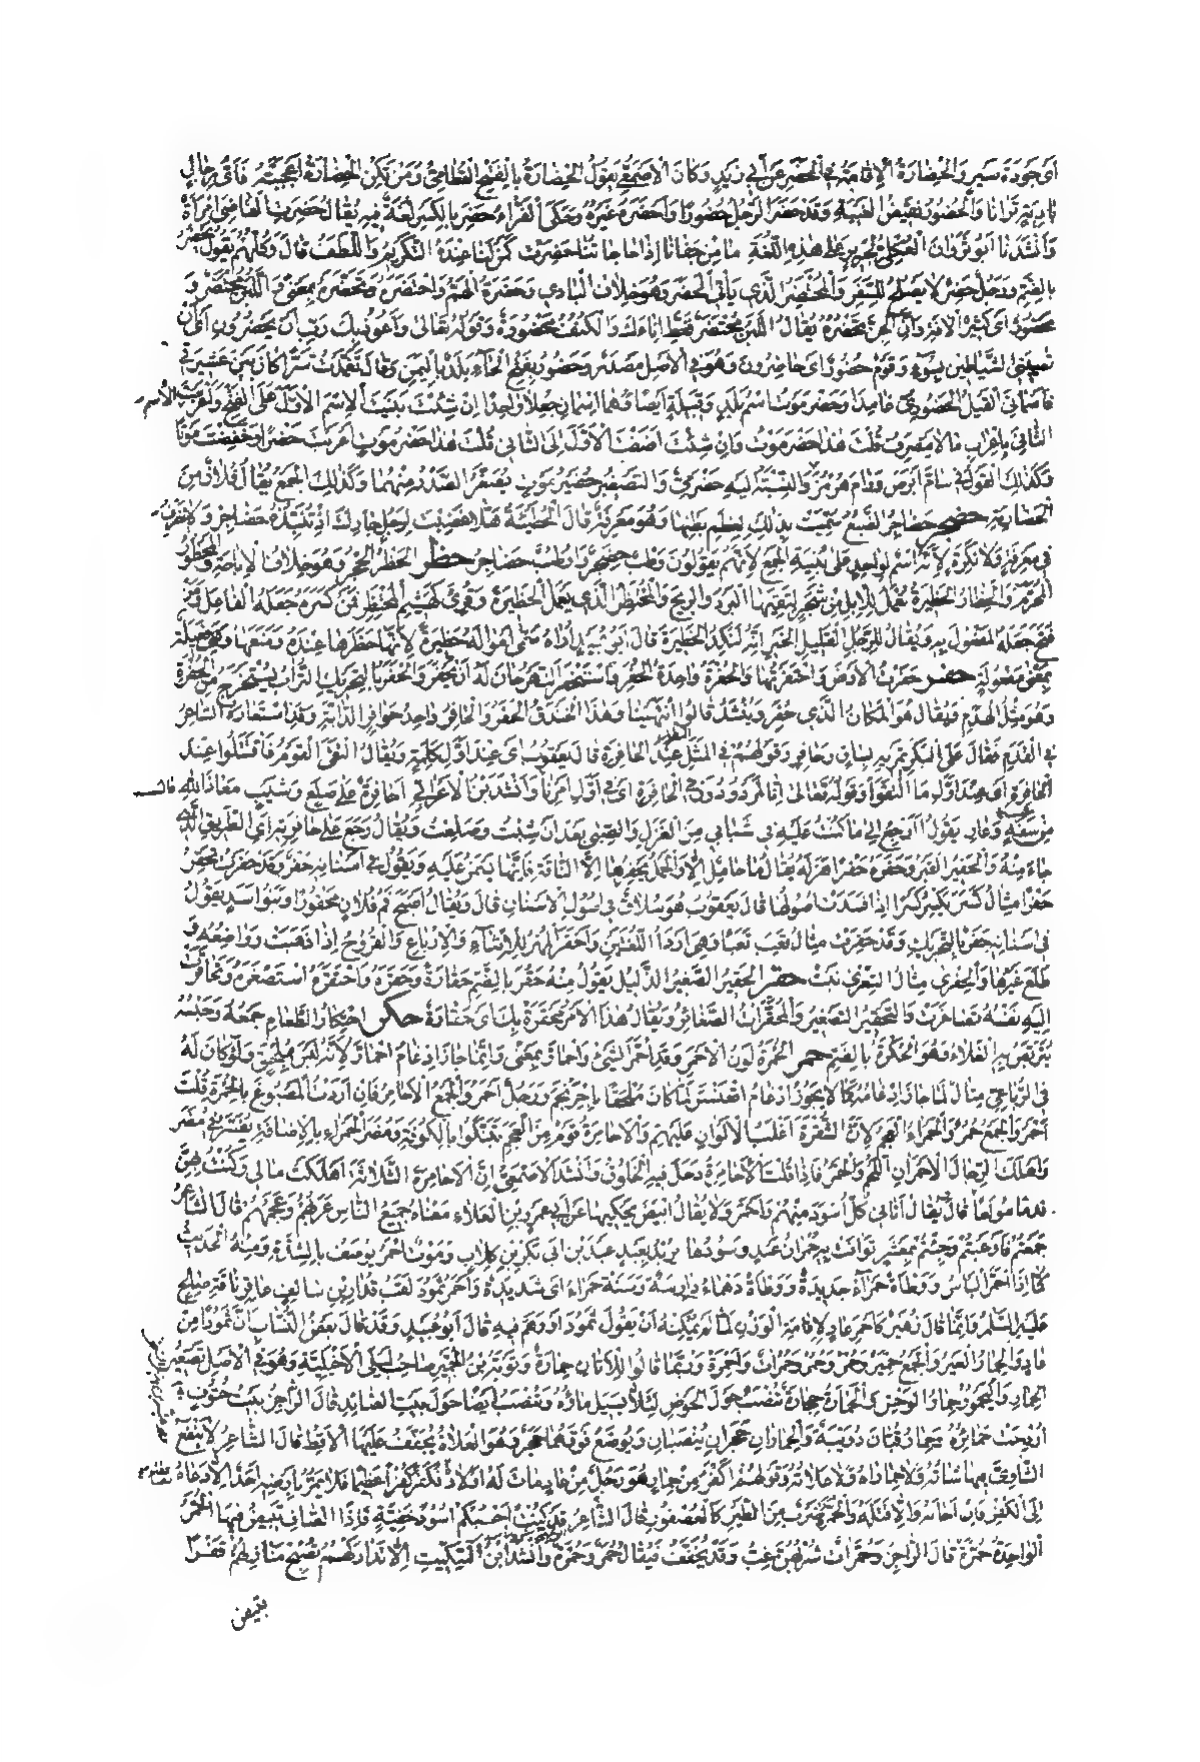 اى جودة سير والحضارة الإقامة فى الحضر عن أبى زيد وكان الأصمعى يقول الحضارة بالفتح القطامى ومن تكن الحضارة أعجبته فأى رجال
بادية ترانا والحضور نقيض الغيبة وقد حضر الرجل حضورا وأحضره غيره وحكى الفراء حضر بالكسر لغة فيه يقال حضرت القاضى امرأة
وأنشدنا أبو ثروان العكلى لجرير على هذه اللغة ما من جفانا إذا حاجاتنا حضرت كمن لنا عنده التكريم واللطف قال وكلهم يقول يحضر
بالضم ورجل حضر لا يصلح للسفر والمحتضر الذى يأتى الحضر وهو خلاف البادى وحضره الهم واحتضره وتحضره بمعنى واللبن محتضر و
محضور اى كثير الآفة وان الجن تحضره يقال اللبن محتضر فغط إناءك والكنف محضورة وقوله تعالى وأعوذ بك رب أن يحضرون اى أن
تصيبنى الشياطين بسوء وقوم حضور اى حاضرون وهو فى الأصل مصدر وحضور بفتح الحاء بلد باليمن وقال تعمدت شرا كان بين عشيرتى
فأسمانى القيل الحضورى غامدا وحضرموت اسم بلد وقبيلة أيضا وهما اسمان جعلا واحدا إن شئت بنيت الاسم الأول على الفتح وأعربت
الثانى بإعراب ما لا ينصرف قلت هذا حضرموت وإن شئت أضفت الأول إلى الثانى قلت هذا حضرموت أعربت حضرا وخفضت موتا
وكذلك القول فى سام أبرص ورام هرمز والنسبة إليه حضرمى والتصغير حضيرموت يصغر الصدر منهما وكذلك الجمع يقال فلان من
الحضارمة حضجر حضاجر الضبع سميت بذلك لعظم بطنها وهو معرفة قال الحطيئة هلا غضبت لرحل جارك إذ تنبذه حضاجر ولا ينصرف
فى معرفة ولا نكرة لأنه اسم لواحد على بنية الجمع لأنهم يقولون وطب حضجر وأوطب حضاجر حظر الحظر الحجر وهو خلاف الإباحة والمحظور
المحرم والحظار الحظيرة تعمل للإبل من شجر لتقيها البرد والريح والمحتظر الذى يعمل الحظيرة وقرئ كهشيم المحتظر فمن كسره جعله الفاعل ومن
فتح جعله المفعول به ويقال للرجل القليل الخير إنه لنكد الحظيرة قال أبو عبيد أراه سمى أمواله حظيرة لأنها حظرها عنده ومنعها وهى فعيلة
بمعنى مفعولة حفر حفرت الأرض واحتفرتها والحفرة واحدة الحفر واستحفر النهر حان له أن يحفر والحفر بالتحريك التراب يستخرج من الحفرة
وهو مثل الهدم ويقال هو المكان الذى حفر وينشد قالوا انتهينا وهذا الخندق الحفر والحافر واحد حوافر الدابة وقد استعاره الشاعر
فى القدم فقال على البكر يمريه بساق وحافر وقولهم فى المثل النقد عند الحافرة قال يعقوب اى عند أول كلمة ويقال التقى القوم فاقتتلوا عند
الحافرة اى عند أول ما التقوا وقوله تعالى إنا لمردودون فى الحافرة اى فى أول أمرنا وأنشد ابن الأعرابى أحافرة على صلع وشيب معاذ الله
من سفه وعار يقول أأرجع إلى ما كنت عليه فى شبابى من الغزل والصبى بعد أن شبت وصلعت ويقال رجع على حافرته اى الطريق الذى
جاء منه والحفير القبر وحفره حفرا هزله يقال ما حامل إلا والحمل يحفرها إلا الناقة فإنها تسمن عليه ويقول فى أسنانه حفر وقد حفرت تحفر
حفرا مثال كسر يكسر كسرا إذا فسدت أصولها قال يعقوب هو سلاق فى أصول الأسنان قال ويقال أصبح فم فلان محفورا وبنو أسد يقول
فى أسنانه حفر بالتحريك وقد حفرت مثال تعب تعبا وهى أردأ اللغتين وأحفر المهر للإثناء والإرباع والقروح إذا ذهبت رواضعه و
طلع غيرها والحفرى مثال الشعرى نبت حقر الحقير الصغير الذليل يقول منه حقر بالضم حقارة وحقره واحتقره استصغره وتحاقرت
إليه نفسه تصاغرت والتحقير التصغير والمحقرات الصغائر ويقال هذا الأمر محقرة بك اى حقارة حكر احتكار الطعام جمعه وحبسه
يتربص به الغلاء وهو الحكرة بالضم حمر الحمرة لون الأحمر وقد احمر الشىء واحمار بمعنى وإنما جاز إدغام احمار لأنه ليس بملحق ولو كان له
فى الرباعى مثال لما جاز إدغامه كما لا يجوز إدغام اقعنسس لما كان ملحقا باحرنجم ورجل أحمر والجمع الأحامر فإن أردت المصبوغ بالحمرة قلت
أحمر والجمع حمر والحمراء العجم لأن الشقرة أغلب الألوان عليهم والأحامرة قوم من العجم تبنكوا بالكوفة ومضر الحمراء بالإضافة يفسر فى مضر
وأهلك الرجال الأحمران اللحم والخمر فإذا قلت الأحامرة دخل فيه الخلوق وأنشد الأصمعى إن الأحامرة الثلاثة أهلكت مالى وكنت بهن
قدما مولعا قال يقال أتانى كل أسود منهم وأحمر ولا يقال أبيض يحكيها عن أبى عمرو بن العلاء معناه جميع الناس عربهم وعجمهم قال الشاعر
جمعتم فأوعيتم وجئتم بمعشر توافت به حمران عبد وسودها يريد بعبد عبد بن أبى بكر بن كلاب وموت أحمر يوصف بالشدة ومنه الحديث
كنا إذا احمر البأس ووطأة حمراء جديدة ووطأة دهماء دارسة وسنة حمراء اى شديدة وأحمر ثمود لقب قدار بن سالف عاقر ناقة صالح
عليه السلام وإنما قال زهير كأحمر عاد لإقامة الوزن لما لم يمكنه أن يقول ثمود أو وهم فيه قال أبو عبيد وقد قال بعض النساب أن ثمودا من
عاد والحمار العير والجمع حمير وحمر وحمر وحمرات وأحمرة وربما قالوا للأتان حمارة وتوبة بن الحمير صاحب ليلى الأخيلية وهو فى الأصل تصغير
الحمار واليحمور حمار الوحش والحمارة حجارة تنصب حول الحوض لئلا يسيل ماؤه وتنصب أيضا حول بيت الصائد قال الراجز بيت حتوف
أردحت حمائره وحمار قبان دويبة والحماران حجران ينصبان ويوضع فوقهما حجر وهو العلاة يجفف عليها الأقط قال الشاعر لا ينفع
الشاوى فيها شاته ولا حماراه ولا علاته وقولهم أكفر من حمار هو رجل من عاد مات له أولاد فكفر كفرا عظيما فلا يمر بأرضه أحد إلا دعاه
إلى الكفر فإن أجابه وإلا قتله والحمرة ضرب من الطير كالعصفور قال الشاعر قد كنت أحسبكم أسود خفية فإذا لصاف تبيض فيها الحمر
الواحدة حمرة قال الراجز وحمرات شربهن غب وقد يخفف فيقال حمر وحمرة وأنشد ابن السكيت إلا تداركهم تصبح منازلهم قفرا
تبيض